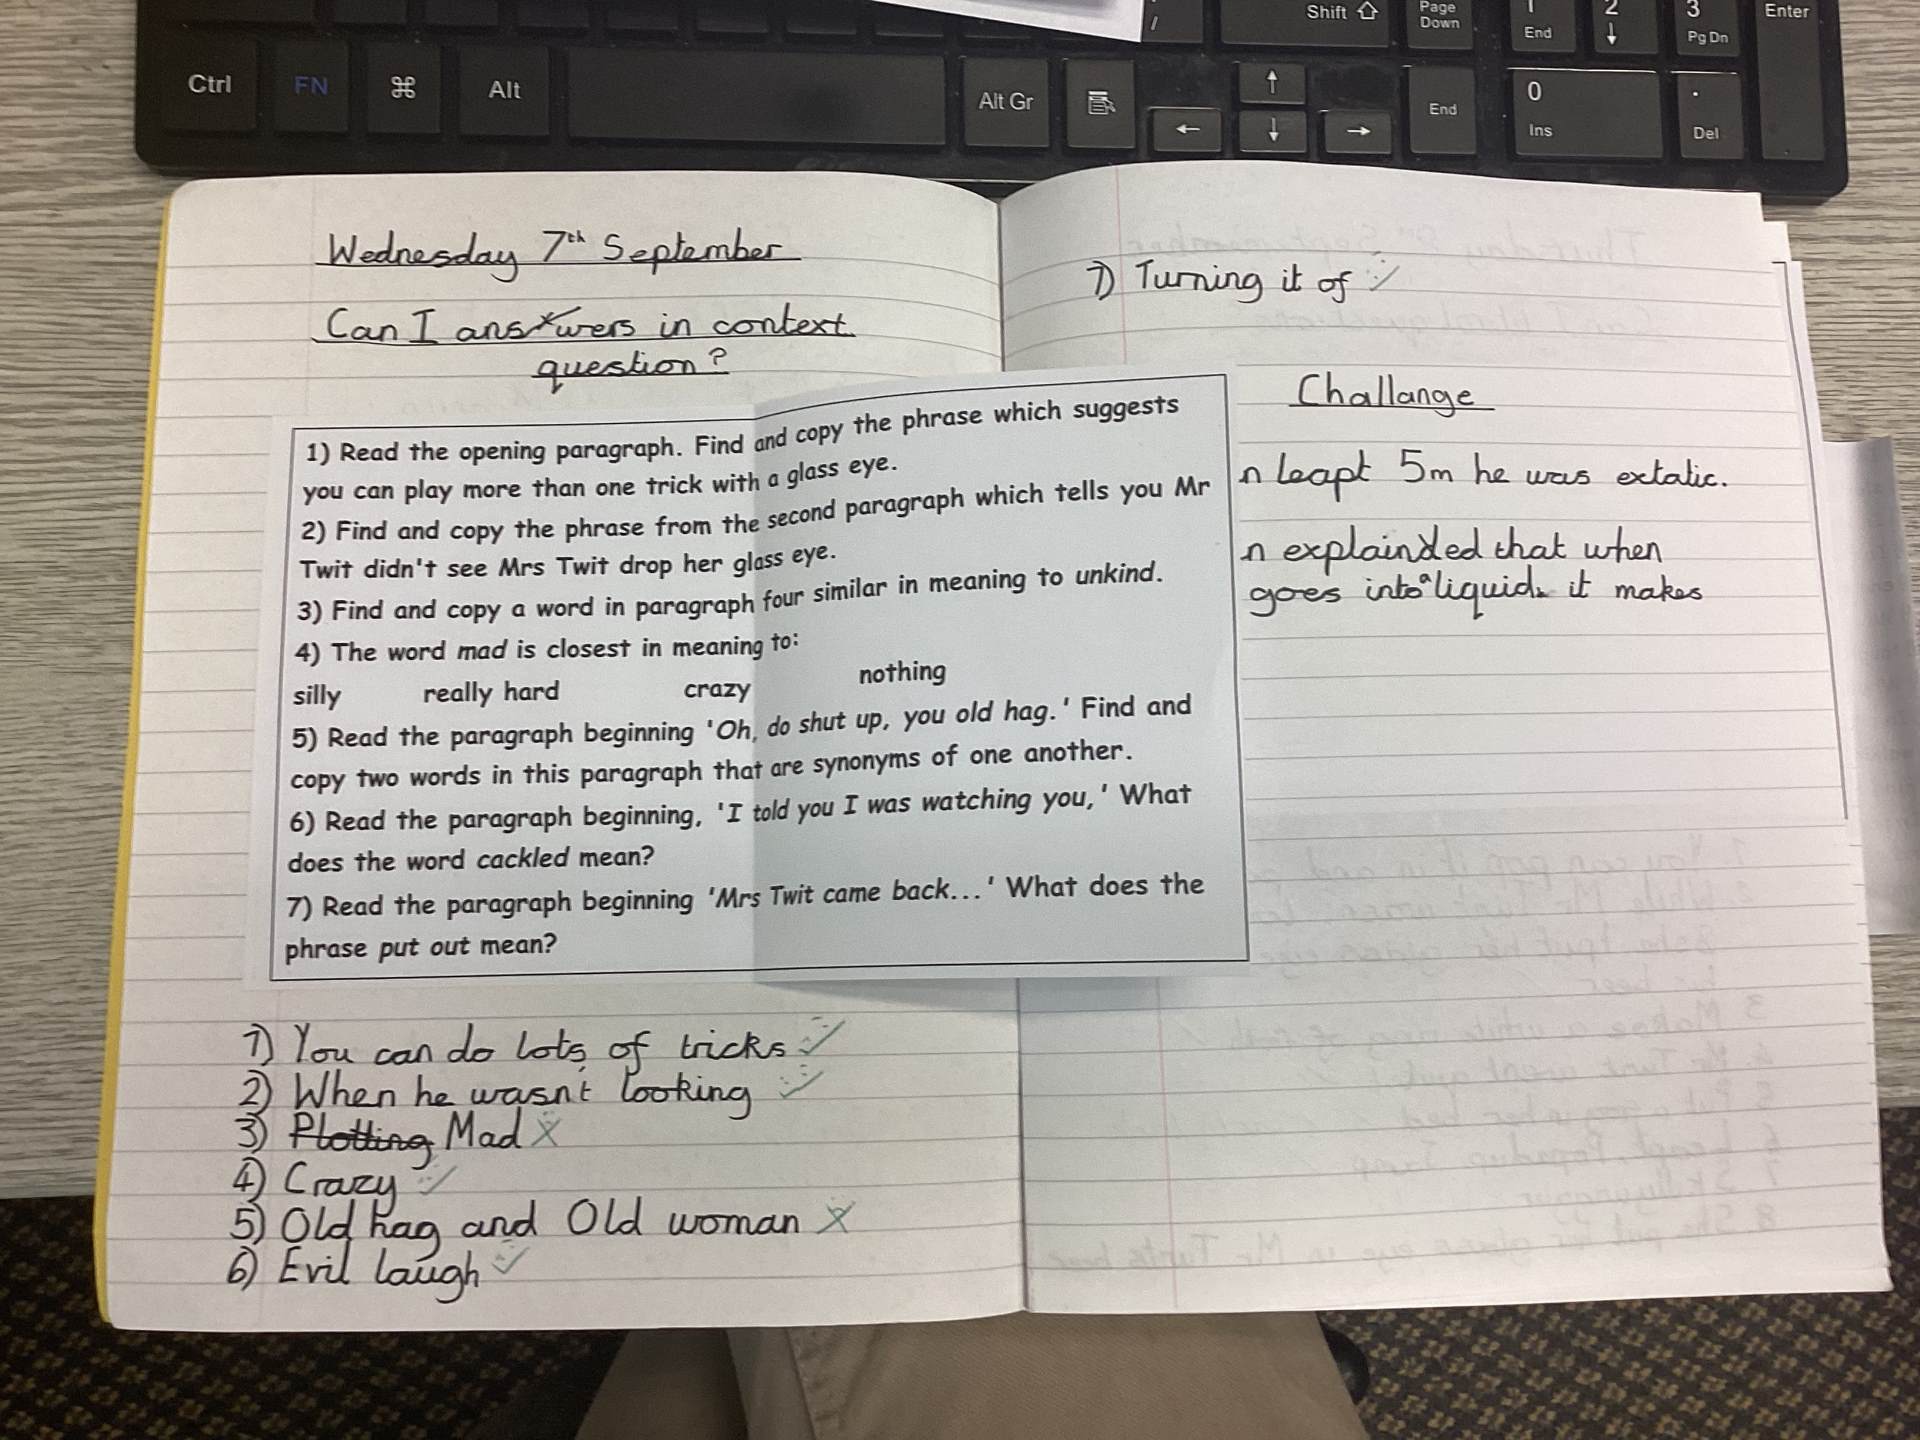 /
Shift
Page Down
1 End
2
3 Pg Dn
Enter
Ctrl
FN
Alt
Alt Gr
End
0 Ins
. Del
Wednesday 7th September
Can I answers in context
question?
1) Read the opening paragraph. Find and copy the phrase which suggests
you can play more than one trick with a glass eye.
2) Find and copy the phrase from the second paragraph which tells you Mr
Twit didn't see Mrs Twit drop her glass eye.
3) Find and copy a word in paragraph four similar in meaning to unkind.
4) The word mad is closest in meaning to:
silly really hard crazy nothing
5) Read the paragraph beginning 'Oh, do shut up, you old hag.' Find and
copy two words in this paragraph that are synonyms of one another.
6) Read the paragraph beginning, 'I told you I was watching you,' What
does the word cackled mean?
7) Read the paragraph beginning 'Mrs Twit came back...' What does the
phrase put out mean?
1) You can do lots of tricks
2) When he wasn't looking
3) Plotting Mad
4) Crazy
5) Old hag and Old woman
6) Evil laugh
7) Turning it of
Challange
n leapt 5m he was extatic.
n explainded that when
goes into a liquid it makes